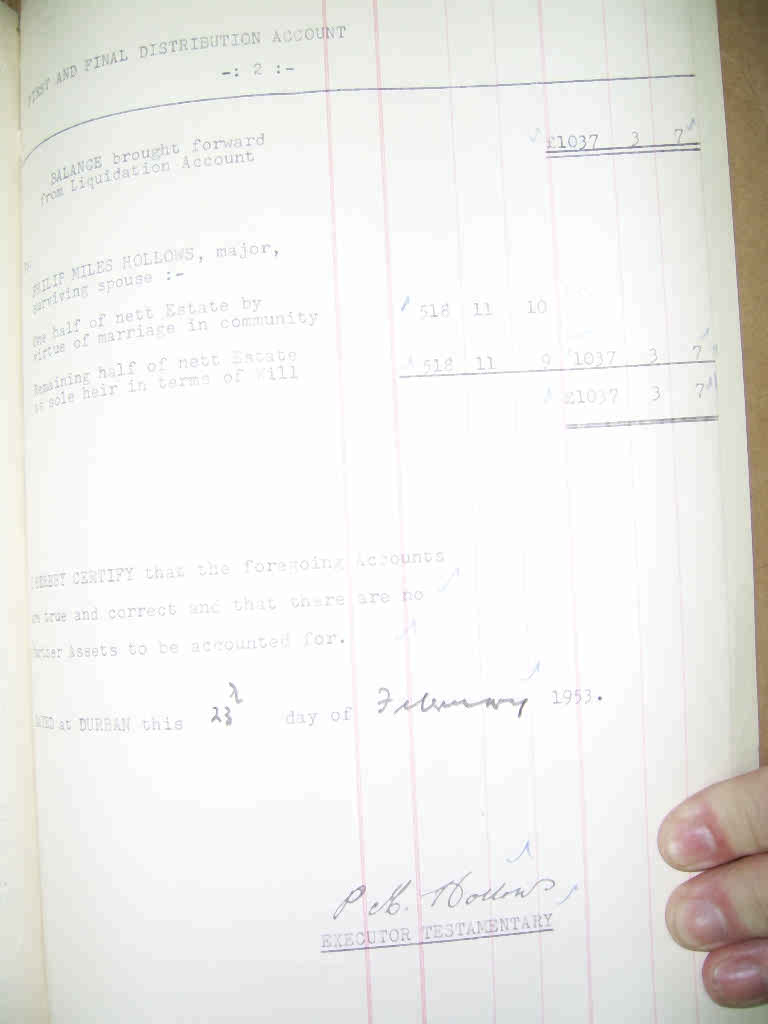 FIRST AND FINAL DISTRIBUTION ACCOUNT
-: 2 :-
BALANCE brought forward
from Liquidation Account £1037 3 7
TO
PHILIP MILES HOLLOWS, major,
surviving spouse :-
One half of nett Estate by
virtue of marriage in community 518 11 10
Remaining half of nett Estate
as sole heir in terms of Will 518 11 9 1037 3 7
£1037 3 7
I HEREBY CERTIFY that the foregoing Accounts
are true and correct and that there are no
further Assets to be accounted for.
DATED at DURBAN this 23 day of February 1953.
P. M. Hollows
EXECUTOR TESTAMENTARY